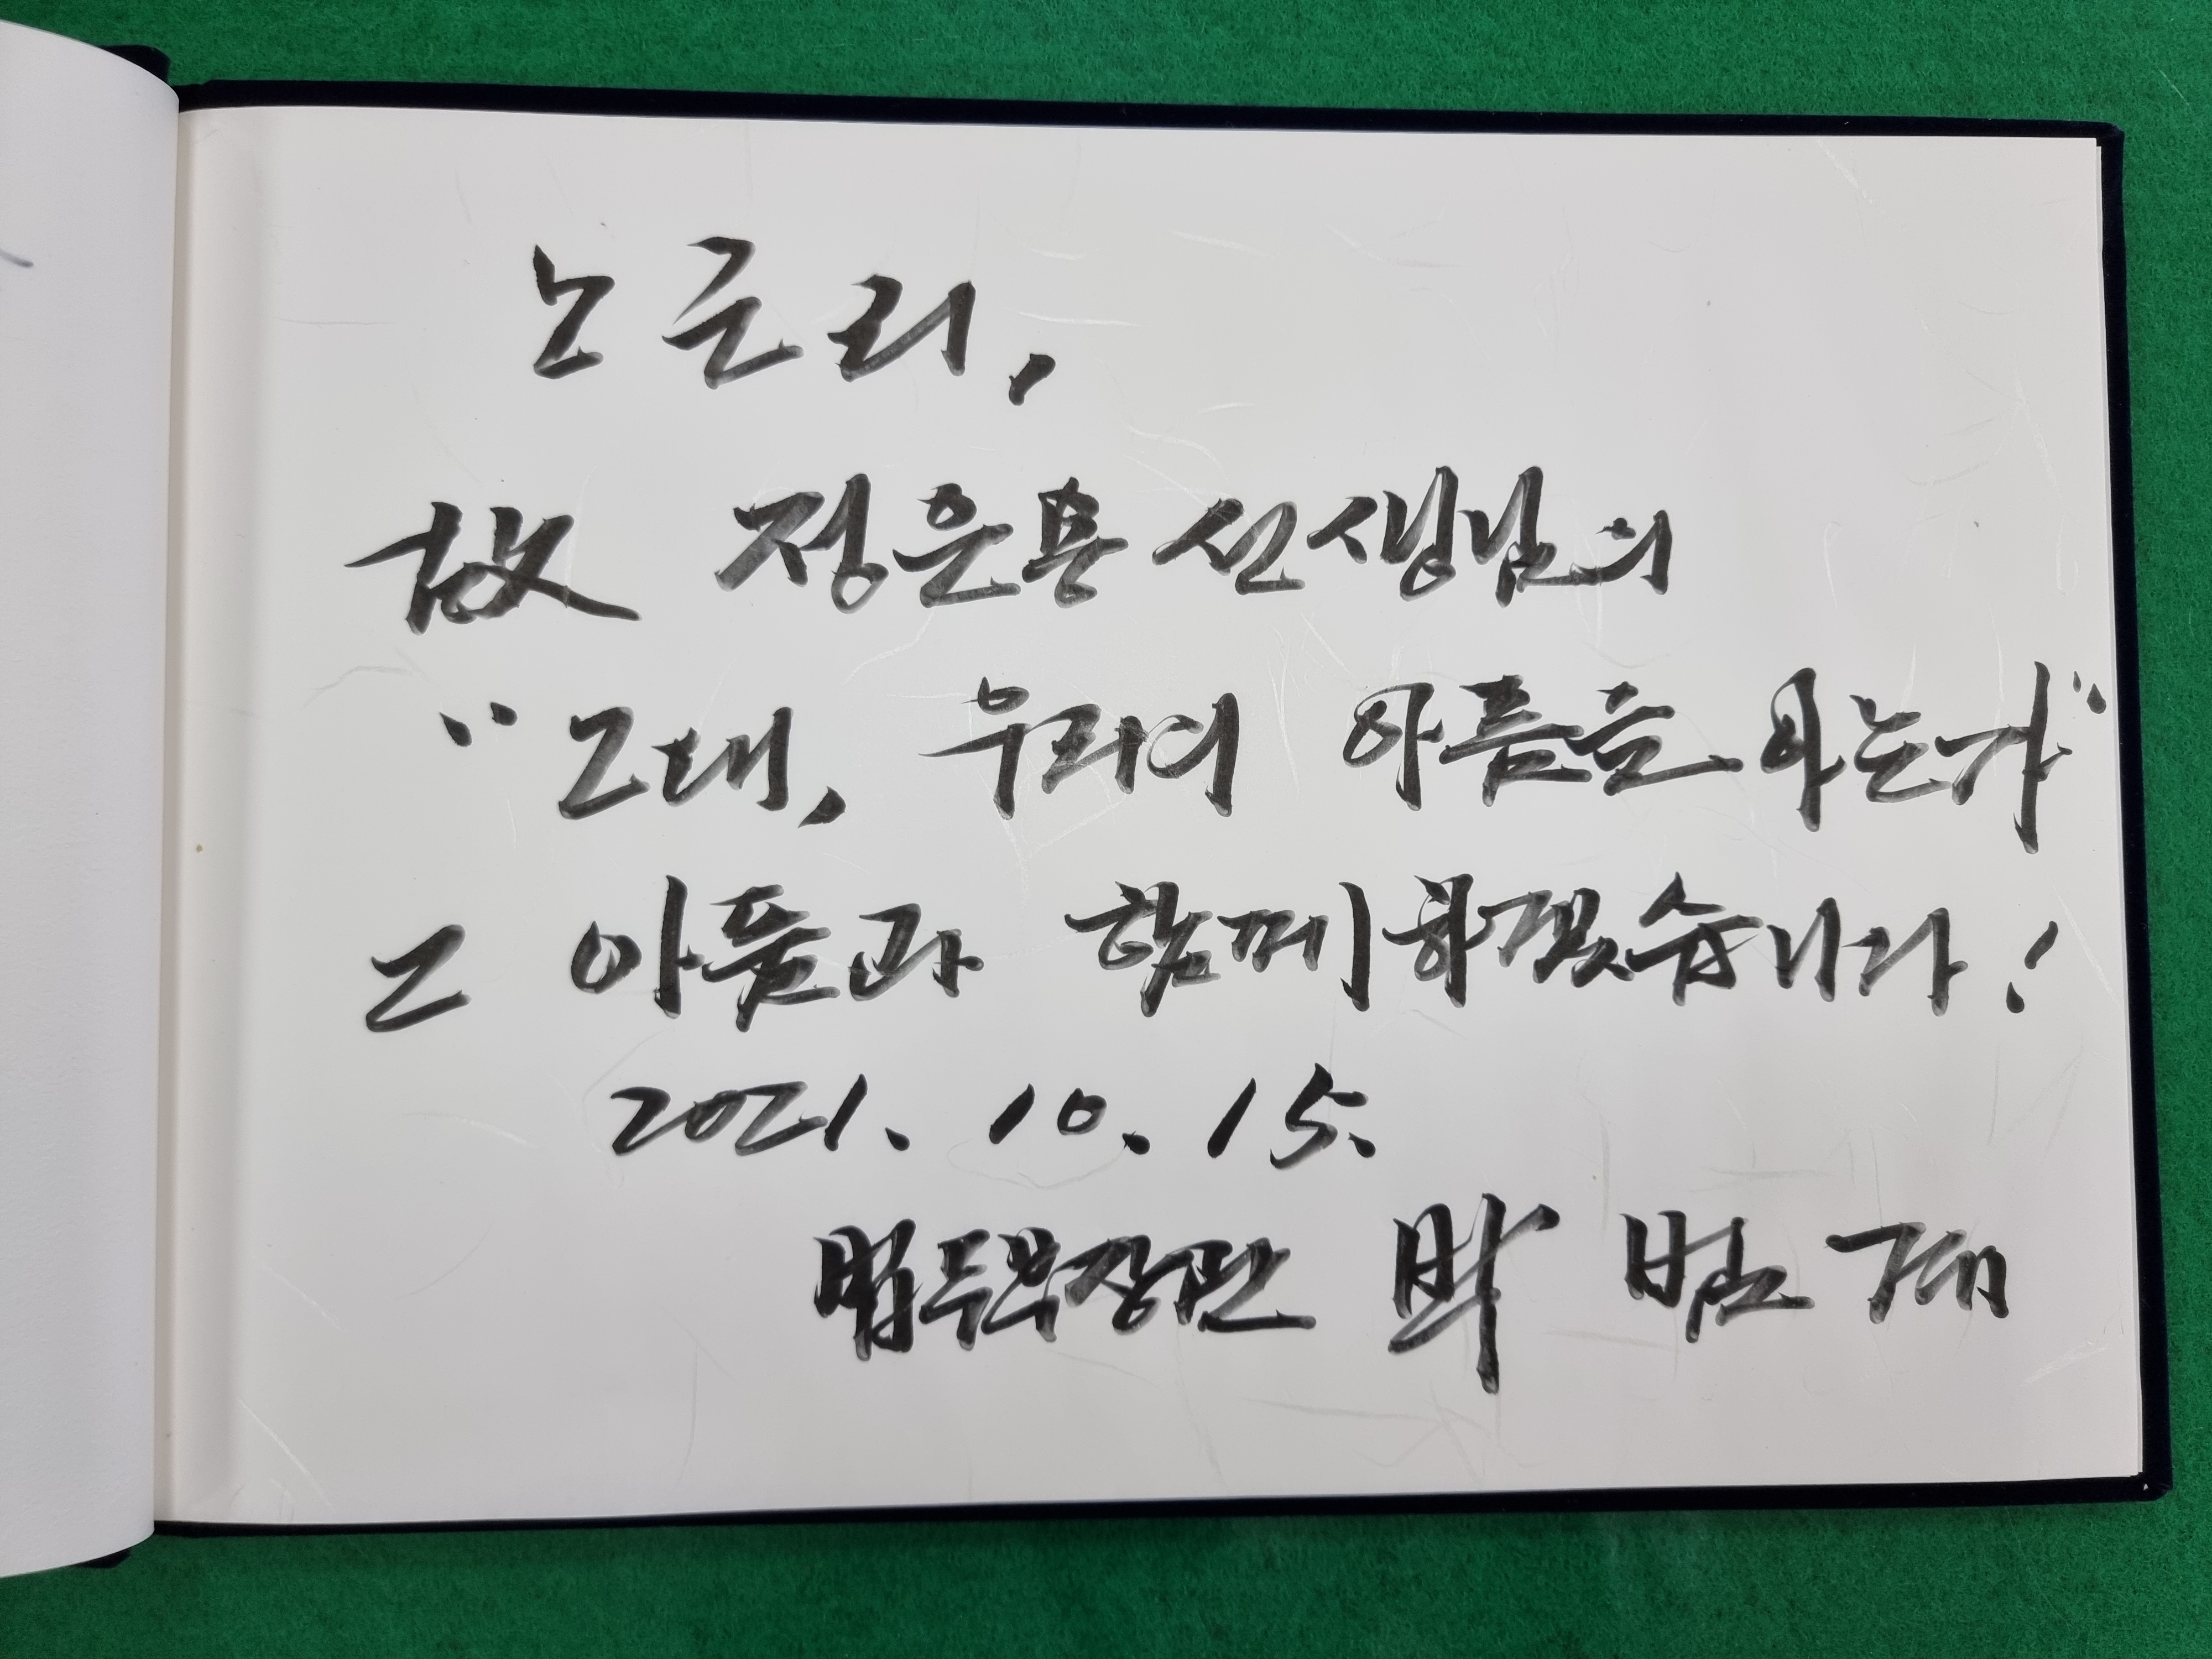 노근리,
故 정은용 선생님의
"그대, 우리의 아픔을 아는가"
그 아픔과 함께하겠습니다!
2021. 10. 15.
법무부장관 박 범 계